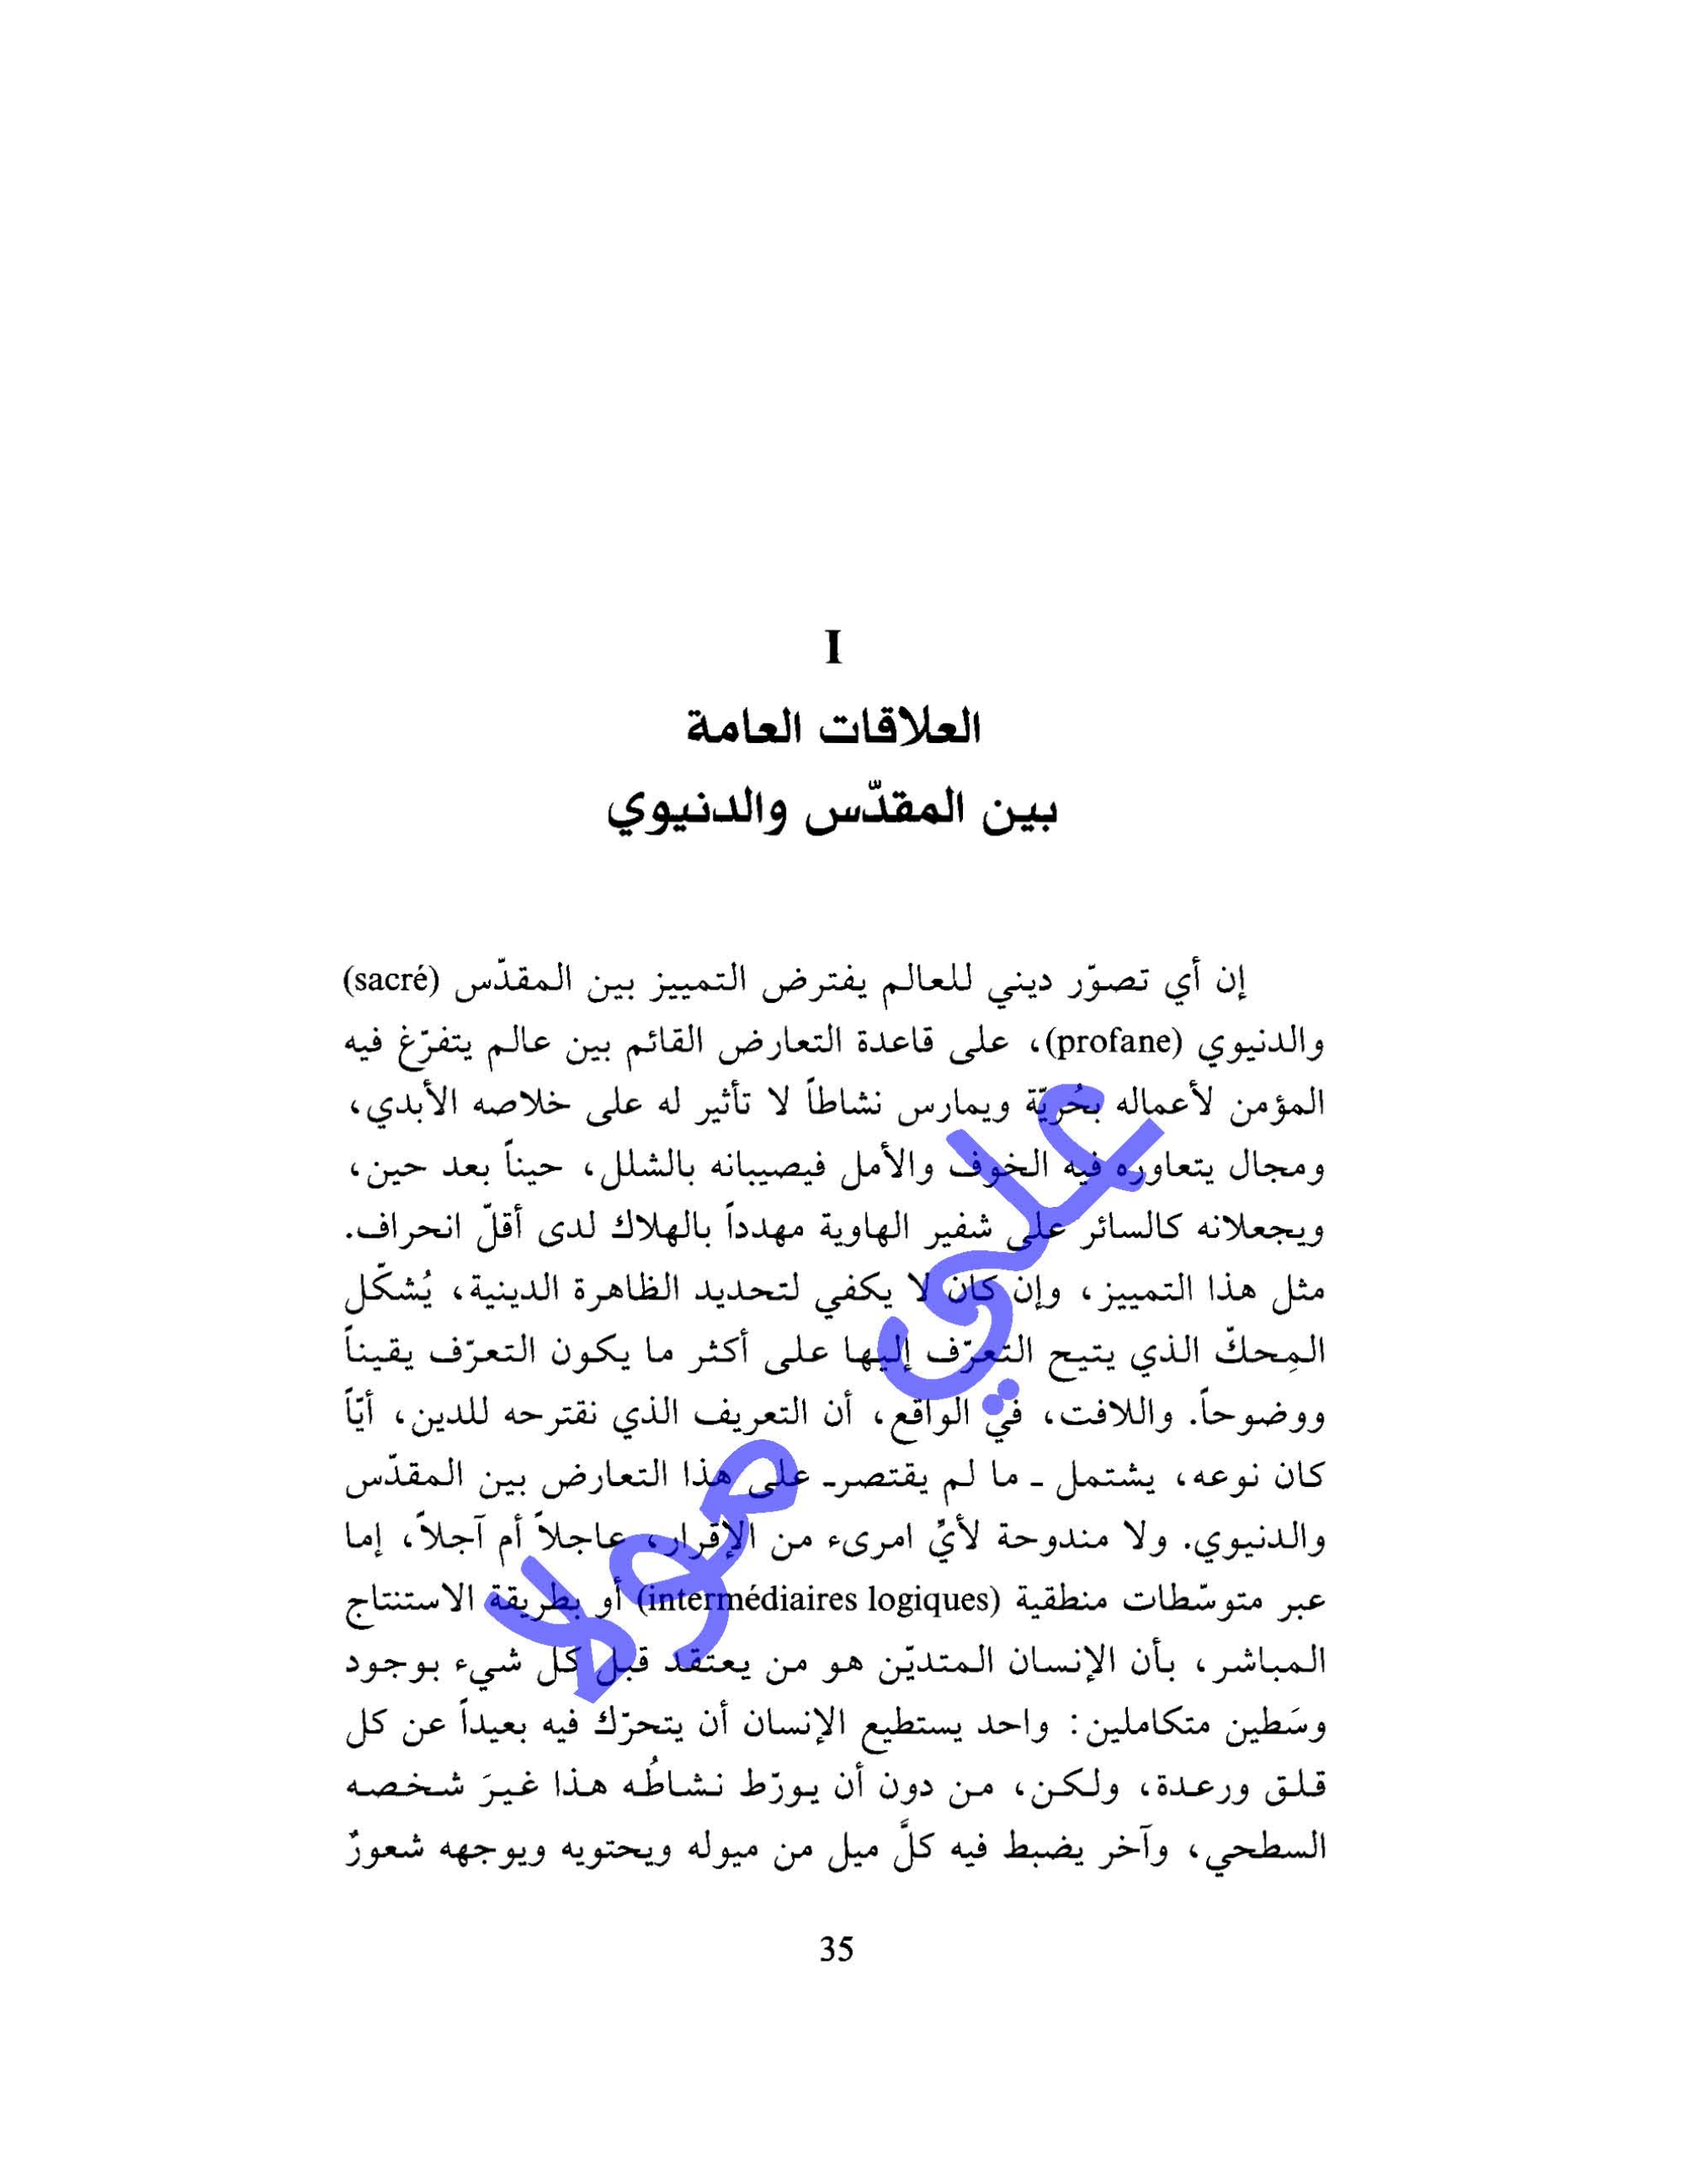 I
العلاقات العامة
بين المقدّس والدنيوي
إن أي تصوّر ديني للعالم يفترض التمييز بين المقدّس (sacré)
والدنيوي (profane)، على قاعدة التعارض القائم بين عالم يتفرّغ فيه
المؤمن لأعماله بحُريّة ويمارس نشاطاً لا تأثير له على خلاصه الأبدي،
ومجال يتعاوره فيه الخوف والأمل فيصيبانه بالشلل، حيناً بعد حين،
ويجعلانه كالسائر على شفير الهاوية مهدداً بالهلاك لدى أقلّ انحراف.
مثل هذا التمييز، وإن كان لا يكفي لتحديد الظاهرة الدينية، يُشكّل
المِحكّ الذي يتيح التعرّف إليها على أكثر ما يكون التعرّف يقيناً
ووضوحاً. واللافت، في الواقع، أن التعريف الذي نقترحه للدين، أيّاً
كان نوعه، يشتمل ـ ما لم يقتصرـ على هذا التعارض بين المقدّس
والدنيوي. ولا مندوحة لأيٍّ امرىء من الإقرار، عاجلاً أم آجلاً، إما
عبر متوسّطات منطقية (intermédiaires logiques) أو بطريقة الاستنتاج
المباشر، بأن الإنسان المتديّن هو من يعتقد قبل كل شيء بوجود
وسَطين متكاملين: واحد يستطيع الإنسان أن يتحرّك فيه بعيداً عن كل
قلق ورعدة، ولكن، من دون أن يورّط نشاطُه هذا غيرَ شخصه
السطحي، وآخر يضبط فيه كلَّ ميل من ميوله ويحتويه ويوجهه شعورٌ
علي مولا
35